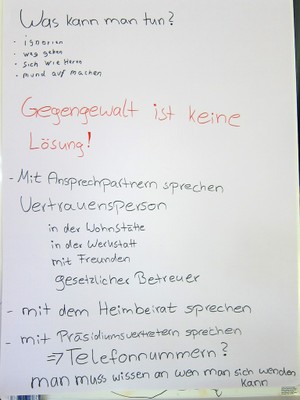 Was kann man tun?
- ignorien
- weg gehen
- sich wie Heren
- mund auf machen
Gegengewalt ist keine
Lösung!
- Mit Ansprechpartnern sprechen
Vertrauensperson
in der Wohnstätte
in der Werkstatt
mit Freunden
gesetzlicher Betreuer
- mit dem Heimbeirat sprechen
- mit Präsidiumsvertretern sprechen
⇒ Telefonnummern?
man muss wissen an wen man sich wenden
kann